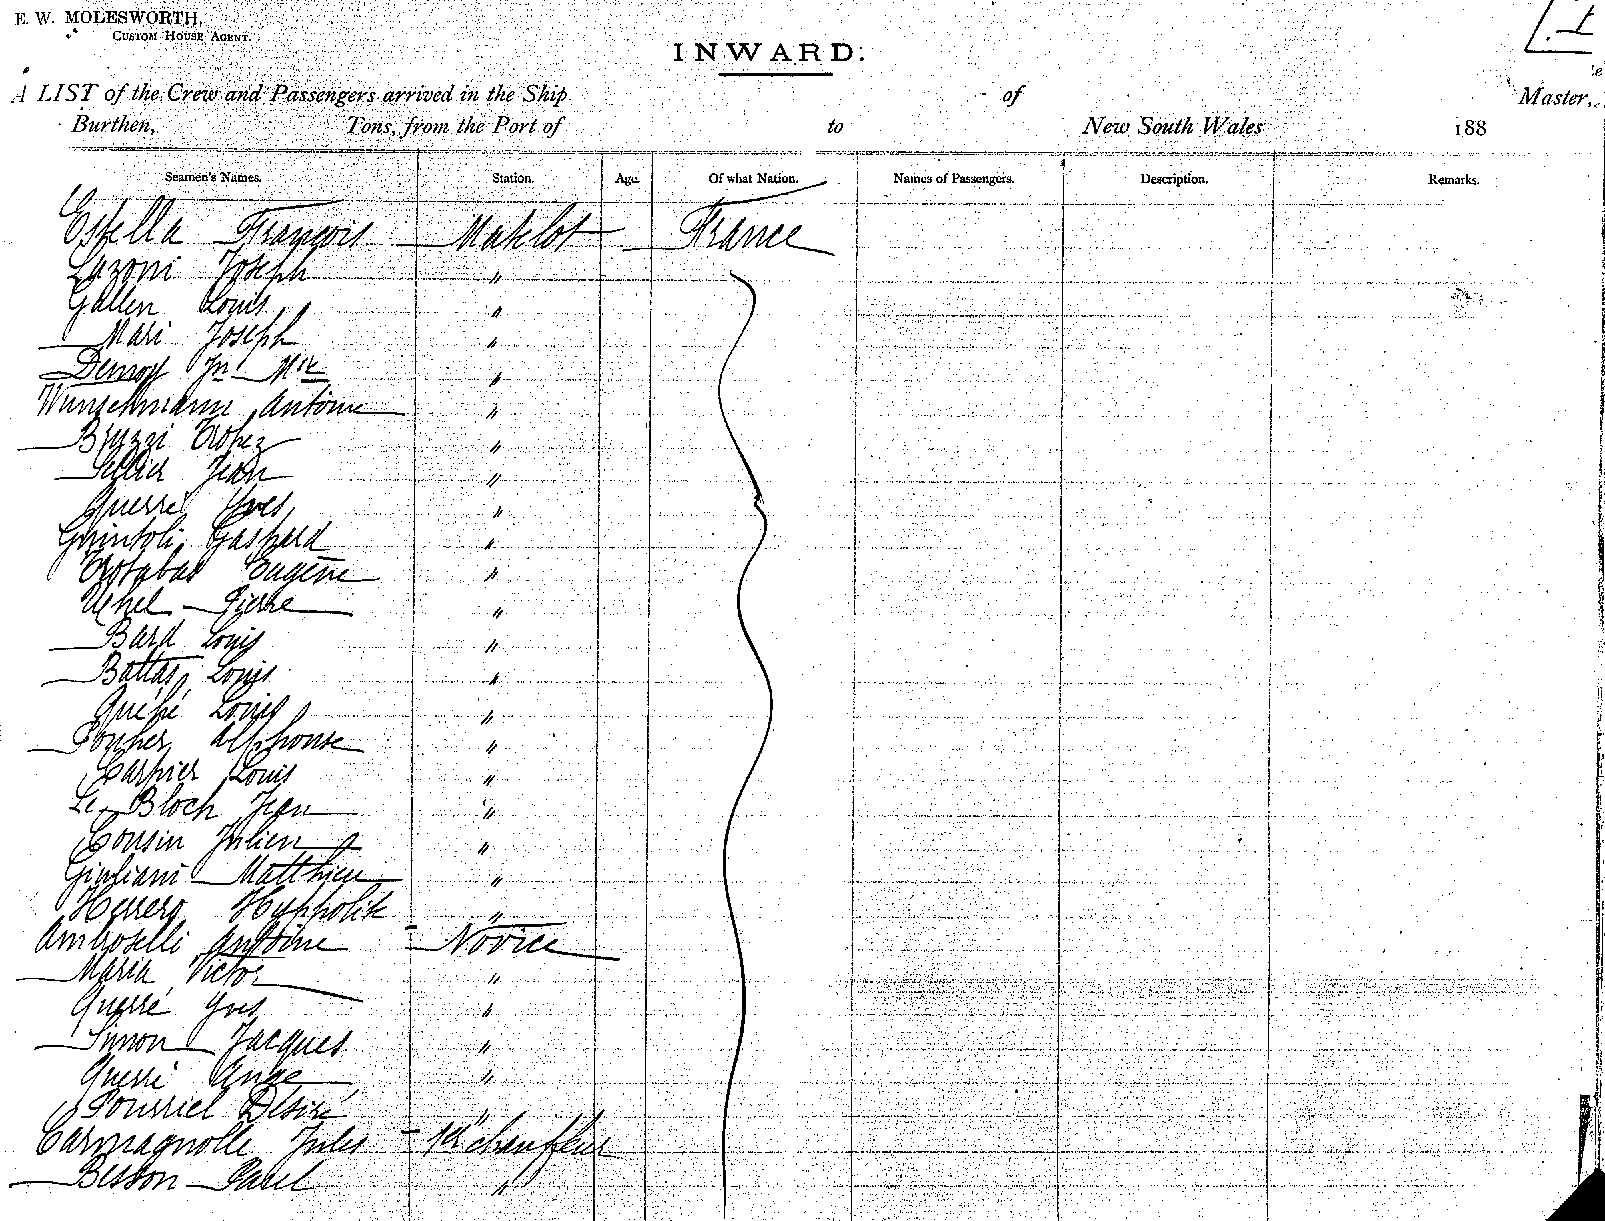 E. W. MOLESWORTH,
CUSTOM HOUSE AGENT.
INWARD:
A LIST of the Crew and Passengers arrived in the Ship of Master,
Burthen, Tons, from the Port of to New South Wales 188
Seamen's Names. Station. Age. Of what Nation. Names of Passengers. Description. Remarks.
Estella François Matelot France
Lazoni Joseph "
Gallen Louis "
Mari Joseph "
Demoy Jn Mie "
Wunschmann Antoine "
Bruzzi Tropez "
Sellier Jean "
Querré Yves "
Guintoli Gaspard "
Trotabas Eugène "
Uhel Pierre "
Bard Louis "
Battas Louis "
Quéhé Louis "
Alphonse "
Carpier Louis "
Le Bloch Jean "
Cousin Julien "
Giuliani Matthieu "
Herrero Hyppolite "
Ambroselli Antoine Novice
Maria Victor "
Querré Yves "
Simon Jacques "
Querré Ange "
Désiré "
Carmagnolle Jules 1er chauffeur
Besson Paul "